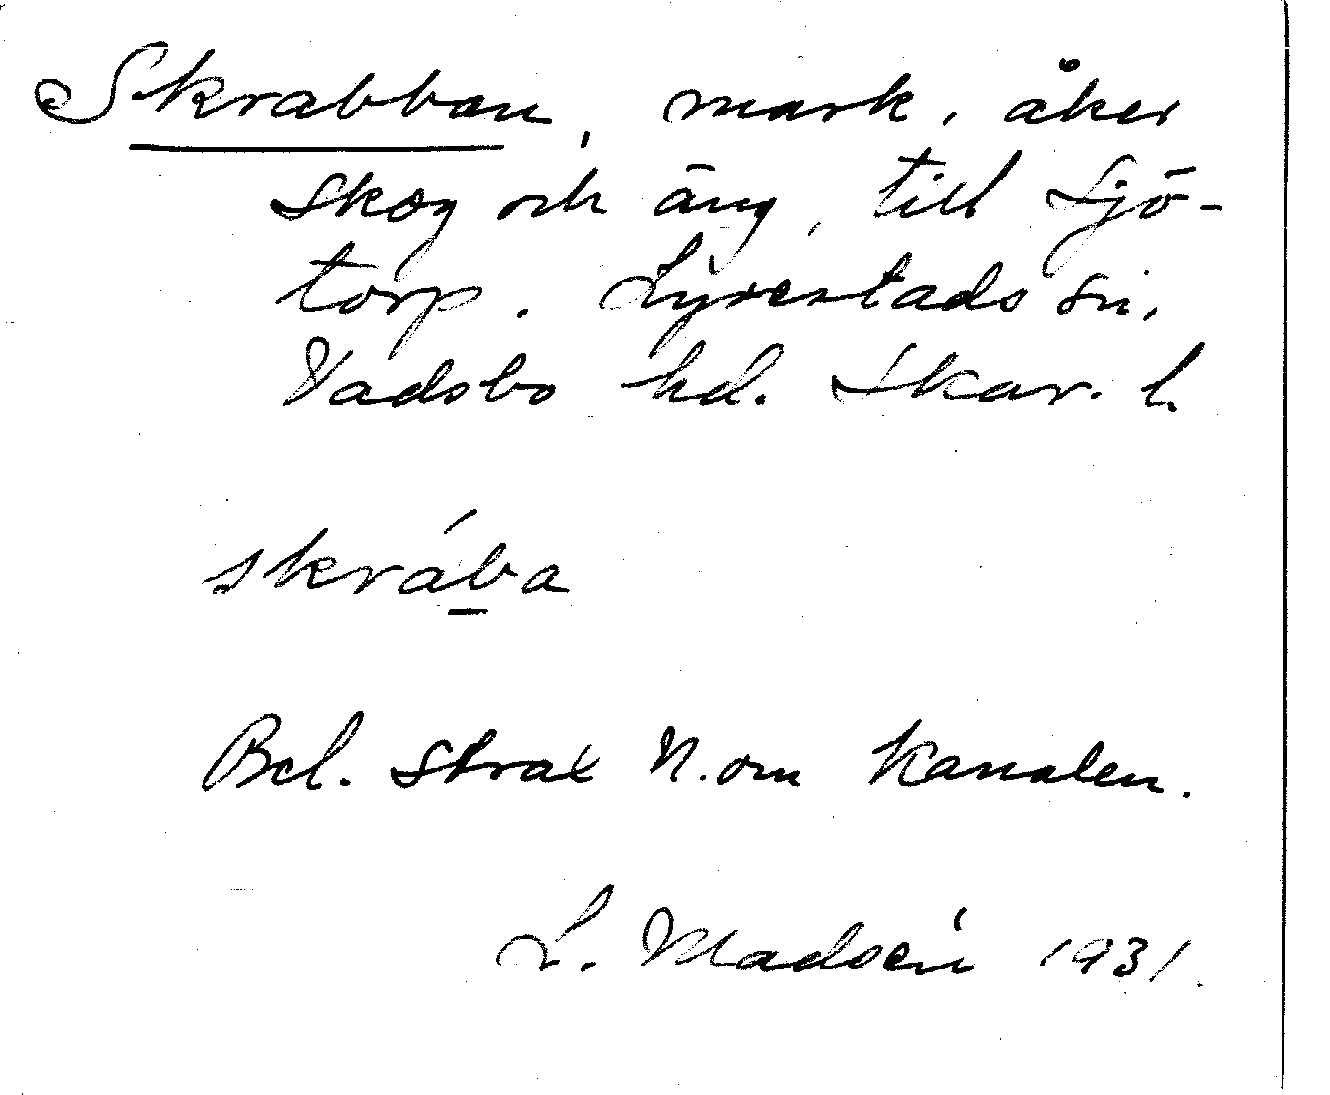 Skrabban, mark, åker
skog och äng, till Sjö-
torp. Lyrestads sn,
Vadsbo hd. Skar. l.
skrába
Bel. strax N. om Kanalen.
L. Madsén 1931.